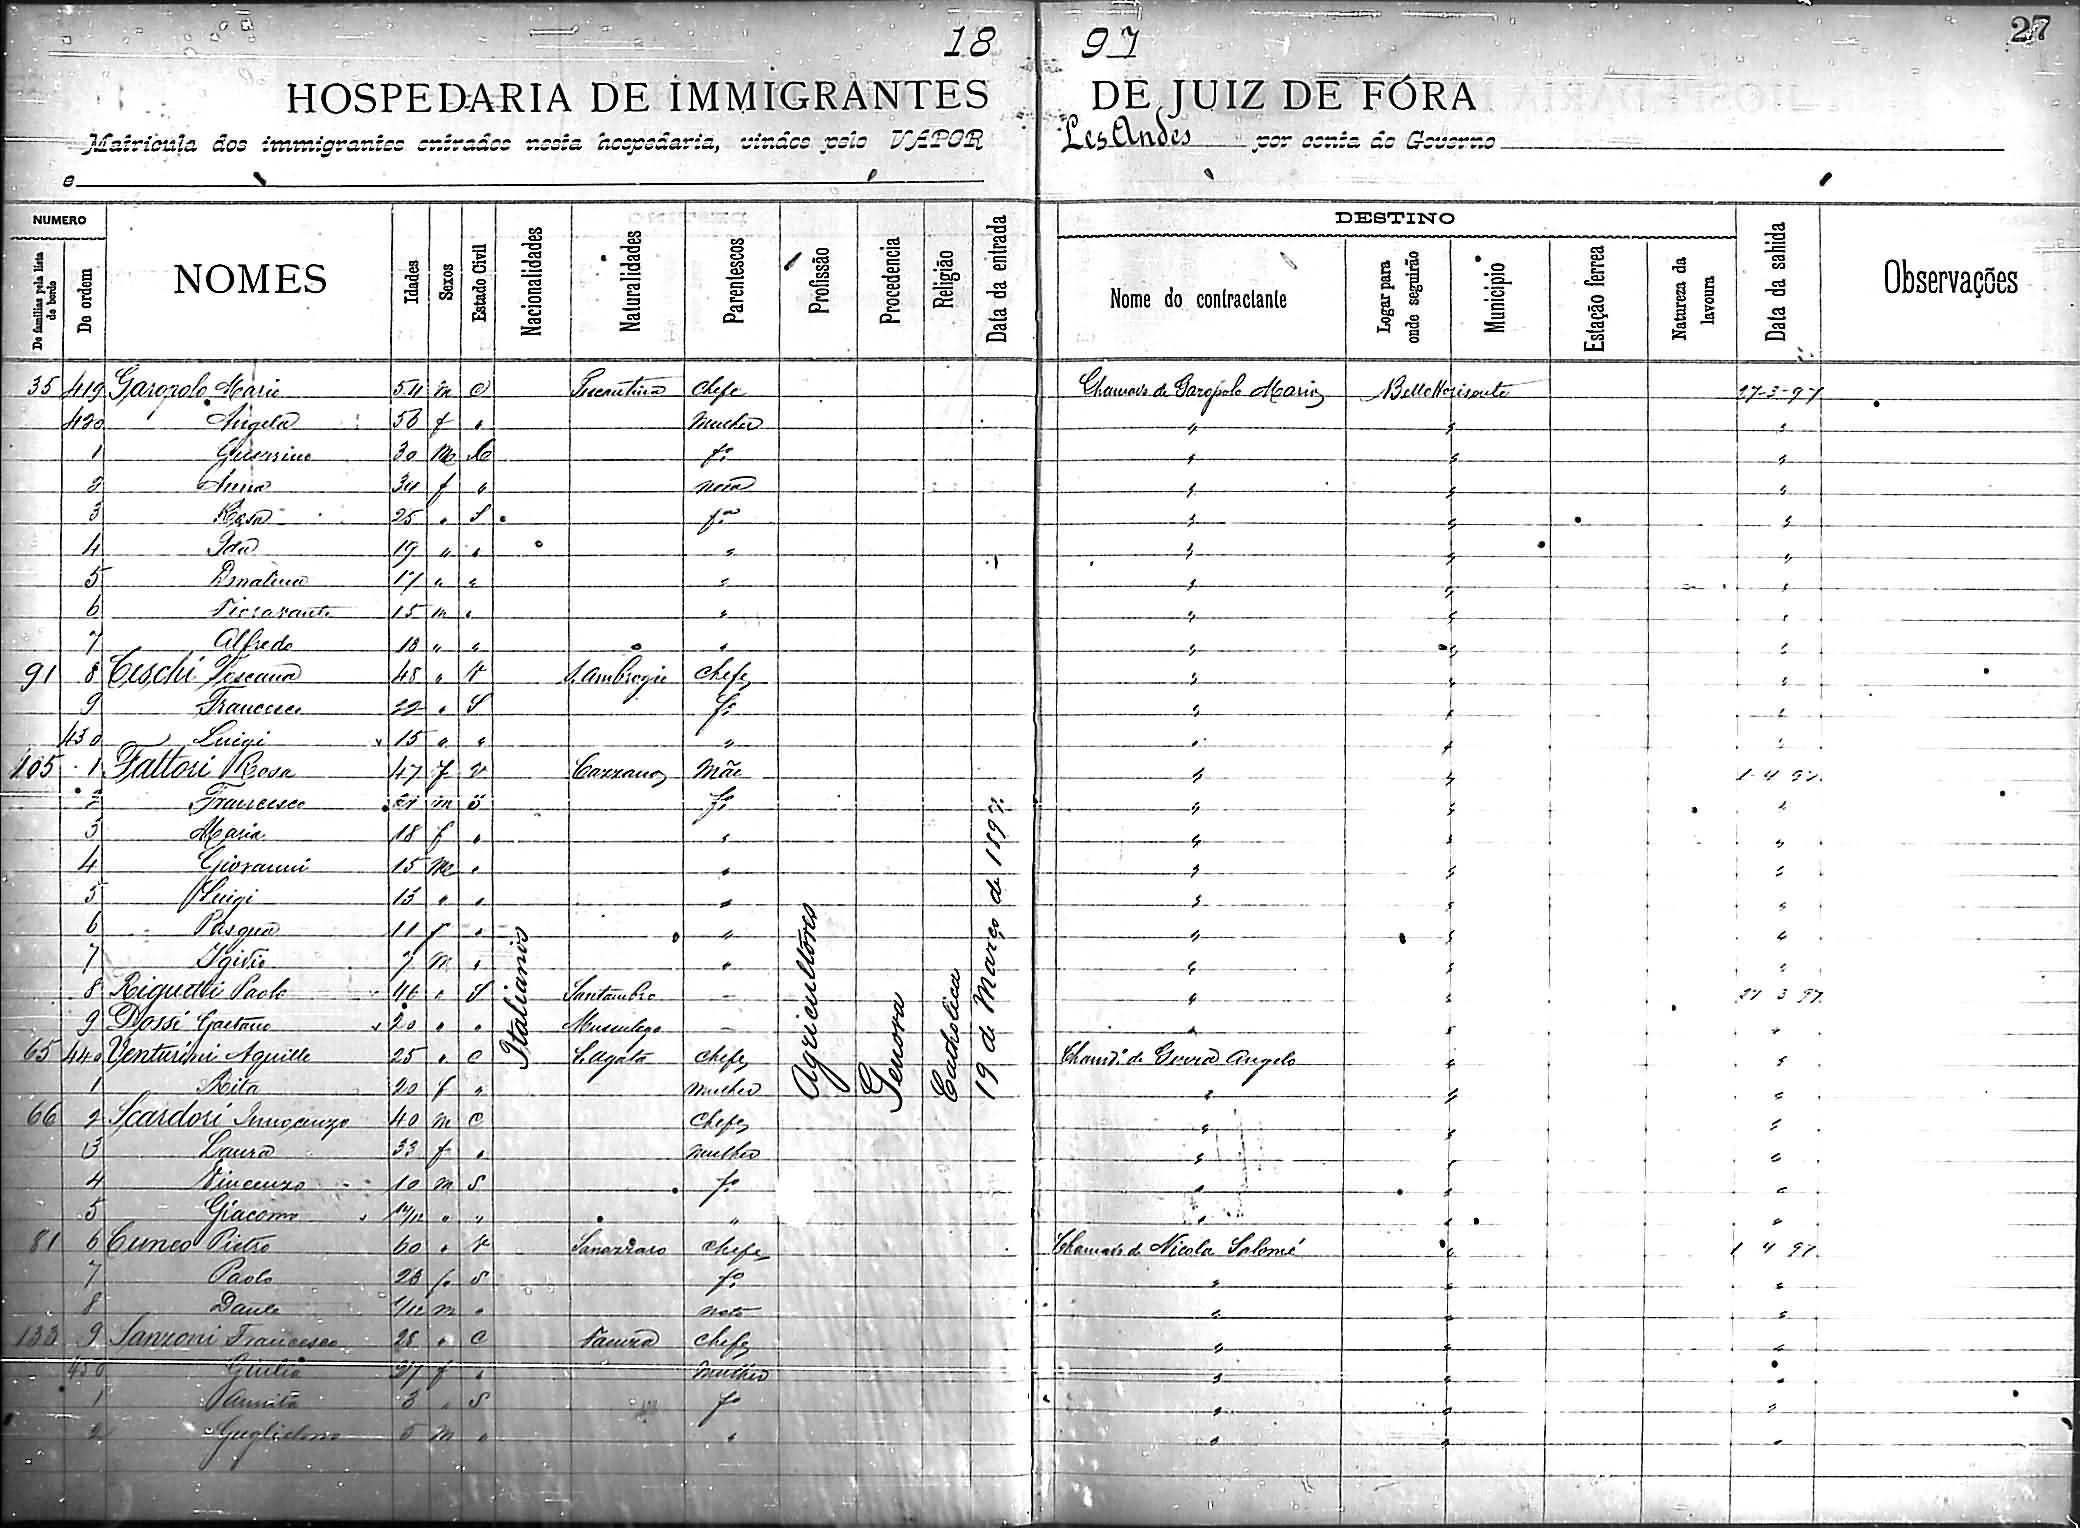 18 97
27
HOSPEDARIA DE IMMIGRANTES DE JUIZ DE FÓRA
Matricula dos immigrantes entrados nesta hospedaria, vindos pelo VAPOR Les Andes por conta do Governo
e
NUMERO
DESTINO
De familias pela lista de bordo
Do ordem
NOMES
Idades
Sexos
Estado Civil
Nacionalidades
Naturalidades
Parentescos
Profissão
Procedencia
Religião
Data da entrada
Nome do contractante
Logar para onde seguirão
Municipio
Estação ferrea
Natureza da lavoura
Data da sahida
Observações
Italianos
Agricultores
Genova
Catholica
19 de Março de 1897
35 419 Garopolo Mario 54 m C chefe Chamado de Garopolo Mario Bello Horisonte 27-3-97
420 Angela 58 f " mulher " " "
1 30 m C fo " " "
2 Anna 34 f " nora " " "
3 Rosa 25 " S fa " " "
4 Ida 19 " " " " " "
5 17 " " " " " "
6 15 m " " " " "
7 Alfredo 13 " " " " " "
91 8 Ceschi Toscano 48 " V S. Ambrogio chefe " " "
9 Francesco 22 " S fo " " "
430 Luigi 15 " " " " " "
105 1 Fattori Rosa 47 f V Cazzano Mãe " " 1-4-97
2 Francesco 21 m S fo " " "
3 Maria 18 f " " " " "
4 Giovanni 15 m " " " " "
5 Luigi 13 " " " " " "
6 Pasqua 11 f " " " " "
7 Igidio 7 m " " " " "
8 Riguetti Paolo " S Santambro — " " 27 3 97
9 Dossi Gaetano 20 " " — " " "
65 440 Venturini Aquille 25 " C S. Agata chefe Chamdo de Guerra Angelo " "
1 Rita 20 f " mulher " " "
66 2 Scardosi Innocenzo 40 m C chefe " " "
3 Laura 33 f " mulher " " "
4 Vincenzo 10 m S fo " " "
5 Giacomo " " " " " "
81 6 Cuneo Pietro 60 " V Sanazzaro chefe Chamado de Nicola Salomé " 1 4 97
7 Paolo 23 S fo " " "
8 Dante m " neto " " "
133 9 Sanzoni Francesco 28 " C chefe " " "
450 Giulia 27 f " mulher " " "
1 3 " S fo " " "
2 Guglielmo m " " " " "